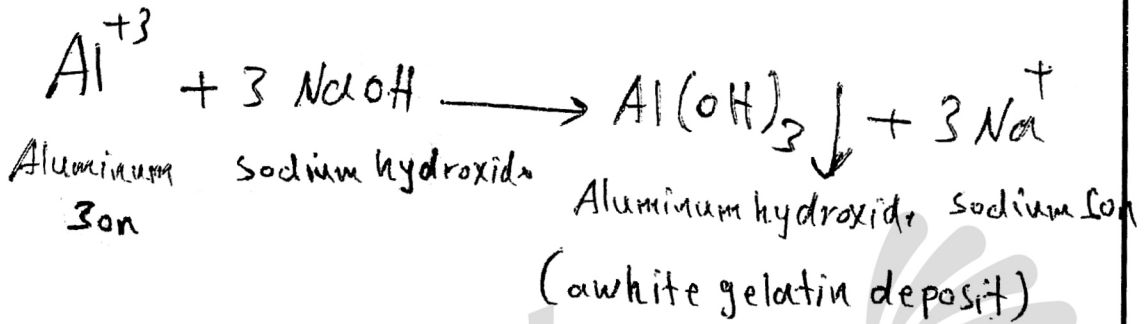 Al⁺³ + 3 NaOH ⟶ Al(OH)₃ ↓ + 3 Na⁺
Aluminum sodium hydroxide Aluminum hydroxide sodium Ion
Ion
(a white gelatin deposit)